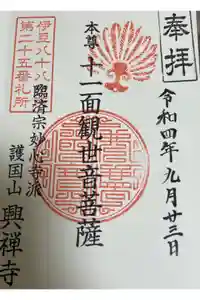 奉拝
令和四年九月廿三日
本尊 十一面観世音菩薩
伊豆八十八
第二十五番札所
臨済宗妙心寺派
護国山 興禅寺